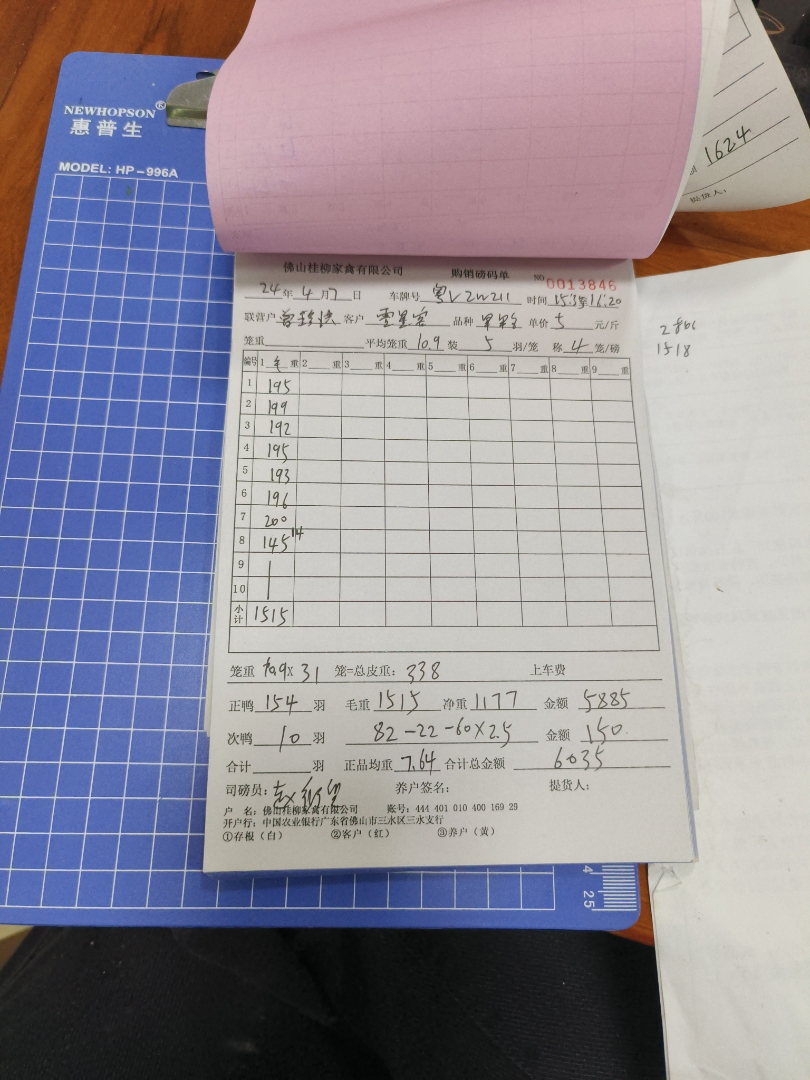 NEWHOPSON®
惠普生
MODEL: HP-996A
1624
提货人：
佛山桂柳家禽有限公司 购销磅码单 NO 0013846
24年4月7日 车牌号 粤V2W211 时间 15:35 16:20
联营户 客户 零星客 品种 单价 5 元/斤
笼重 平均笼重 10.9 装 5 羽/笼 称 4 笼/磅
编号 1 毛 重 2 重 3 重 4 重 5 重 6 重 7 重 8 重 9 重
1 195
2 199
3 192
4 195
5 193
6 196
7 200
8 145 14
9
10
小计 1515
笼重 10.9 X 31 笼=总皮重： 338 上车费
正鸭 154 羽 毛重 1515 净重 1177 金额 5885
次鸭 10 羽 82-22-60X2.5 金额 150
合计 羽 正品均重 7.64 合计总金额 6035
司磅员： 养户签名： 提货人：
户 名：佛山桂柳家禽有限公司 账号：444 401 010 400 169 29
开户行：中国农业银行广东省佛山市三水区三水支行
①存根（白） ②客户（红） ③养户（黄）
1518
4
25